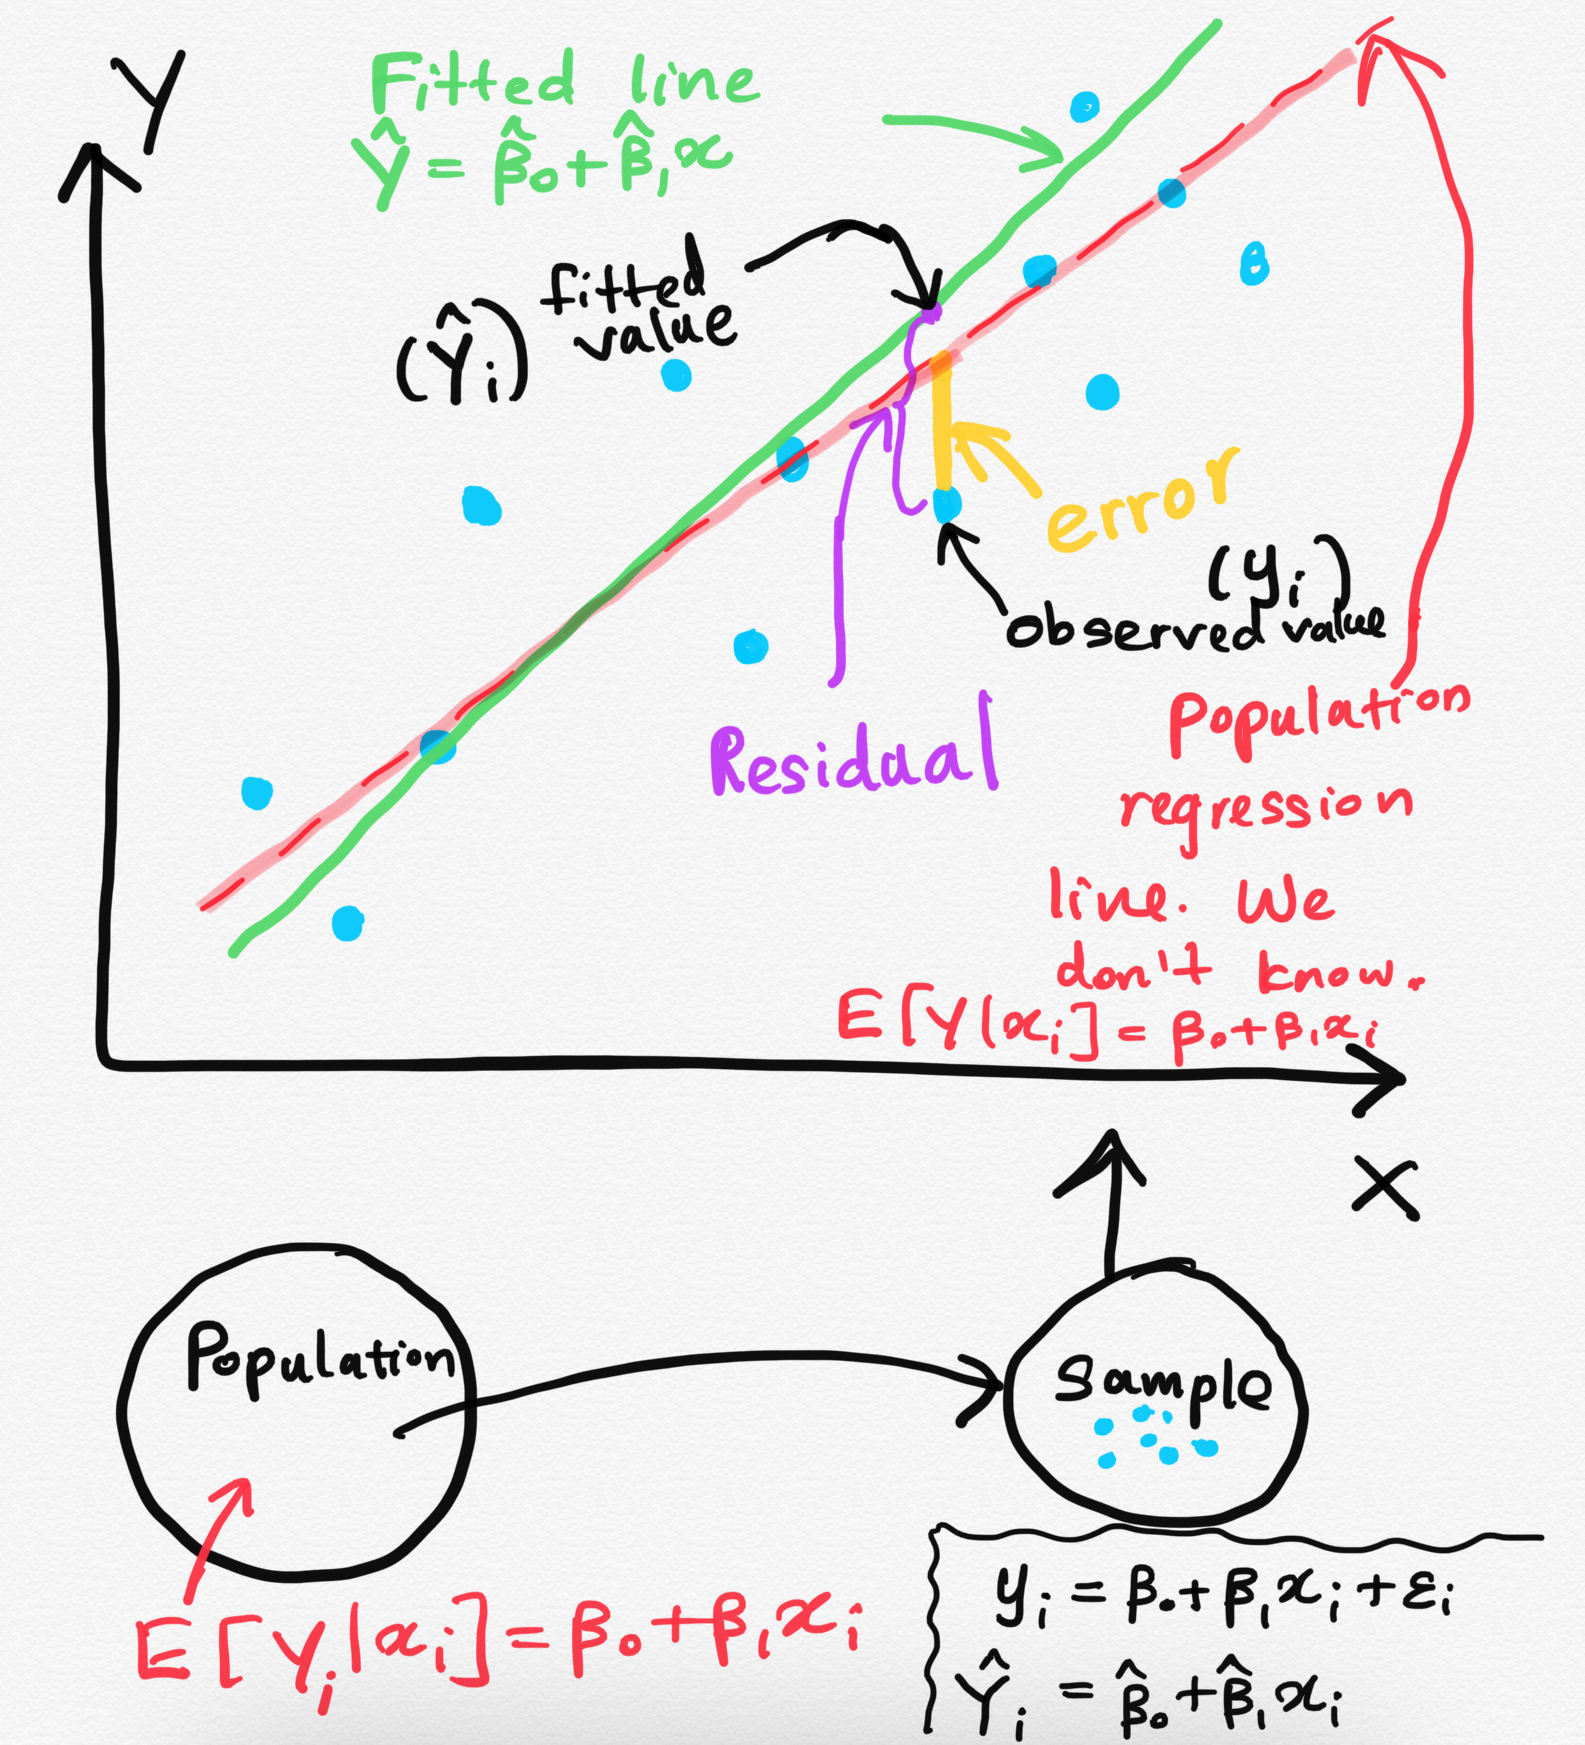 Y
Fitted line
Ŷ = β̂₀ + β̂₁x
fitted
value
(Ŷᵢ)
error
(yᵢ)
observed value
Residual
Population
regression
line. We
don't know.
E[Y|xᵢ] = β₀ + β₁xᵢ
X
Population
Sample
E[Yᵢ|xᵢ] = β₀ + β₁xᵢ
yᵢ = β₀ + β₁xᵢ + εᵢ
Ŷᵢ = β̂₀ + β̂₁xᵢ